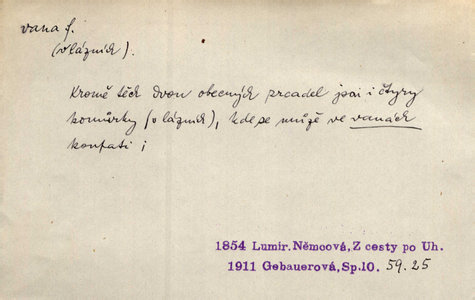 vana f.
(v lázních).
Kromě těch dvou obecných zrcadel jsou i čtyry
komůrky (v lázních), kde se může ve vanách
koupati;
1854 Lumir. Němcová, Z cesty po Uh.
1911 Gebauerová, Sp.10. 59.25